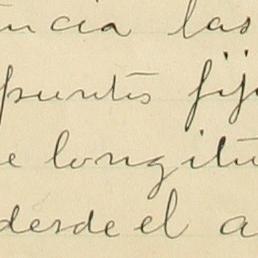 ncia las
puntos fij
e longitu
desde el a